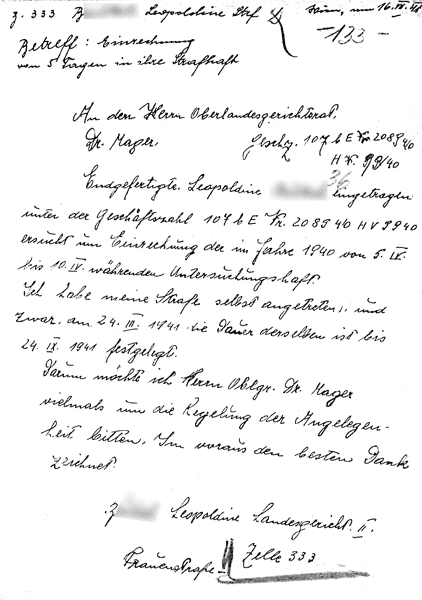 Z. 333 Leopoldine Strf Wien, am 16. IV. 41
-133-
Betreff: Einrechnung
von 5 Tagen in ihre Strafhaft
An den Herrn Oberlandesgerichtsrat.
Dr. Mager, Geschz. 107 b E Nr 2089 40
H V 99/40
36
Endgefertigte, Leopoldine eingetragen
unter der Geschäftszahl 107 b E Nr. 2089 40 H V 99 40
ersucht um Einrechnung der im Jahre 1940 von 5. IV.
bis 10. IV. währenden Untersuchungshaft.
Ich habe meine Strafe selbst angetreten, und
zwar, am 24. III. 1941 die Dauer derselben ist bis
24. IX. 1941 festgelegt.
Darum möchte ich Herrn Oblgr. Dr. Mager
vielmals um die Regelung der Angelegen-
heit bitten. Im voraus den besten Dank
zeichnet.
Leopoldine Landesgericht. II.
Frauenstrafe Zelle 333